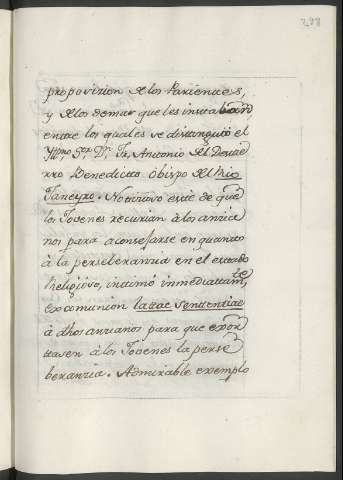 298
propovizion de los Parientes,
y de los demas que les instabaron
entre los quales se distinguió el
Yllmo. Sor. Dn. Fr. Antonio del Destie
rro Benedicto Obispo del Rio
Janeyro. Notinovo este de que
los Jovenes recurian à los anzia
nos para aconsejarse en quanto
à la perseberanzia en el estado
Religiòso, intimó inmediattamte.
excomunion lattae Senttentiae
à dhos anzianos para que exor
ttasen à los Jovenes la perse
beranzia. Admirable exemplo